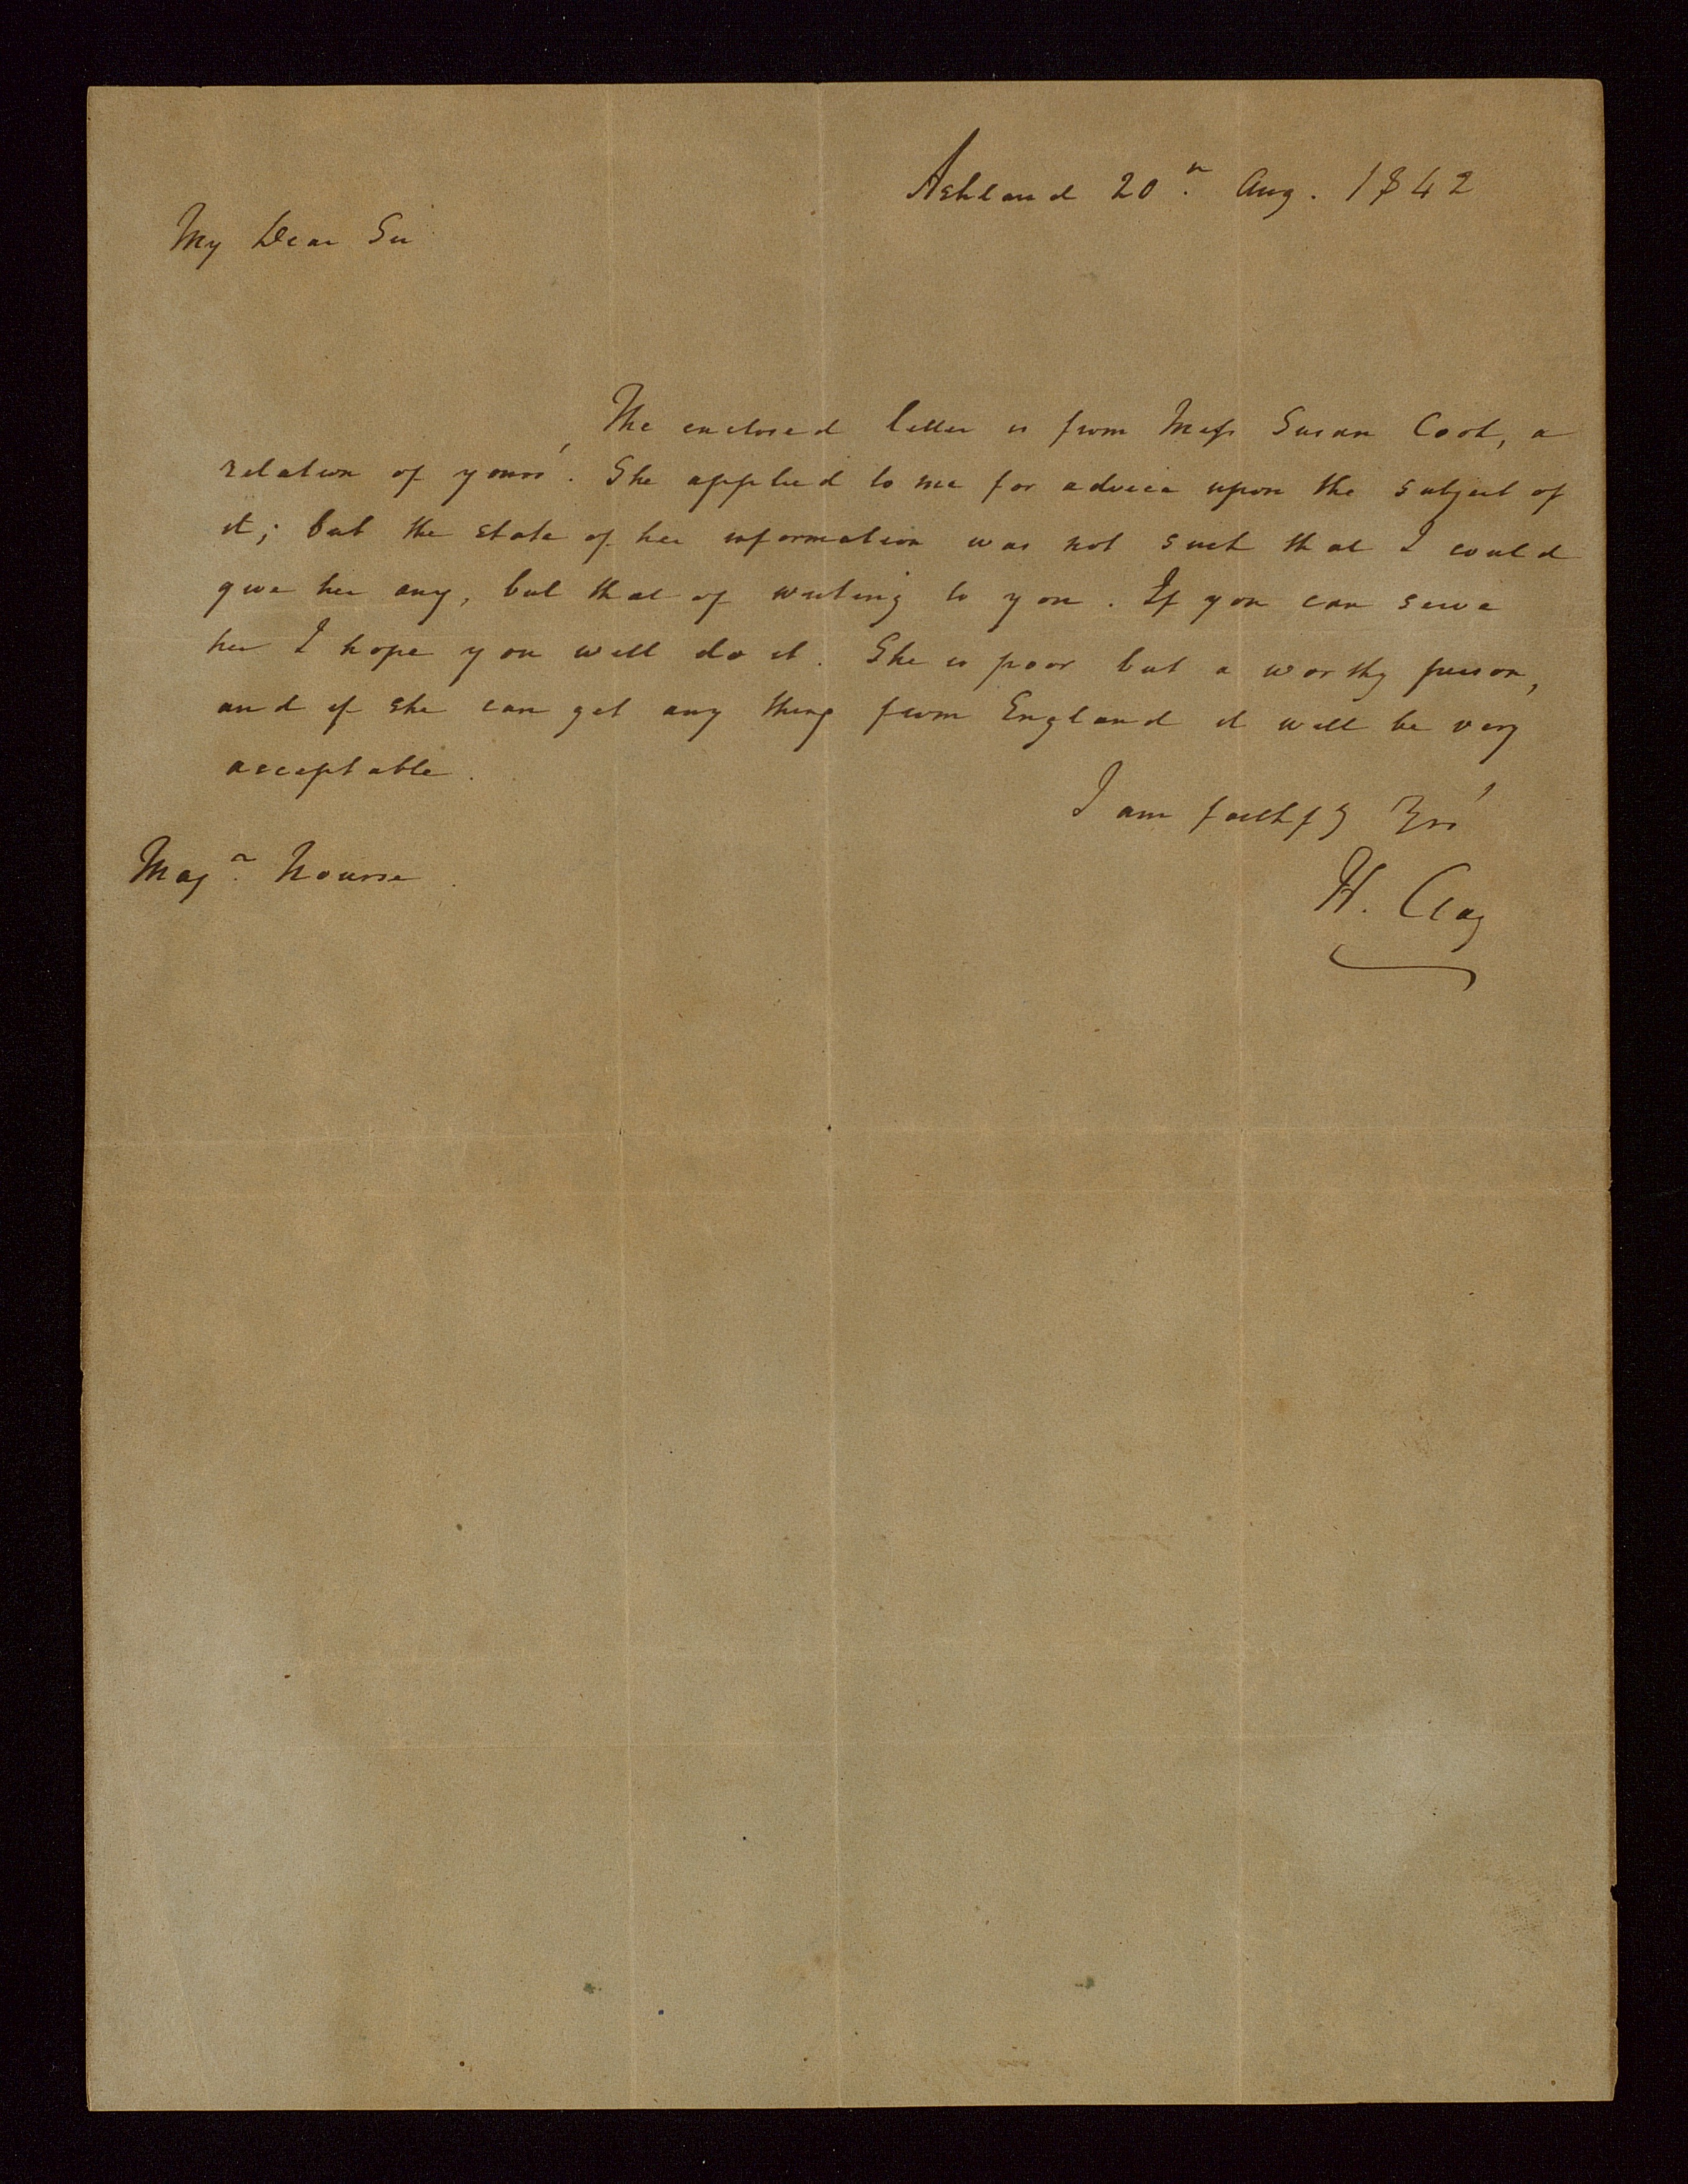 Ashland 20h. Aug. 1842
My Dear Sir
The enclosed letter is from Miss Susan Cook, a
relation of yours'. She applied to me for advice upon the subject of
it; but the state of her information was not such that I could
give her any, but that of writing to you. If you can serve
her I hope you will do it. She is poor but a worthy person,
and if she can get any thing from England it will be very
acceptable.
I am faithfy Yrs'
Majr. Nourse.
H. Clay